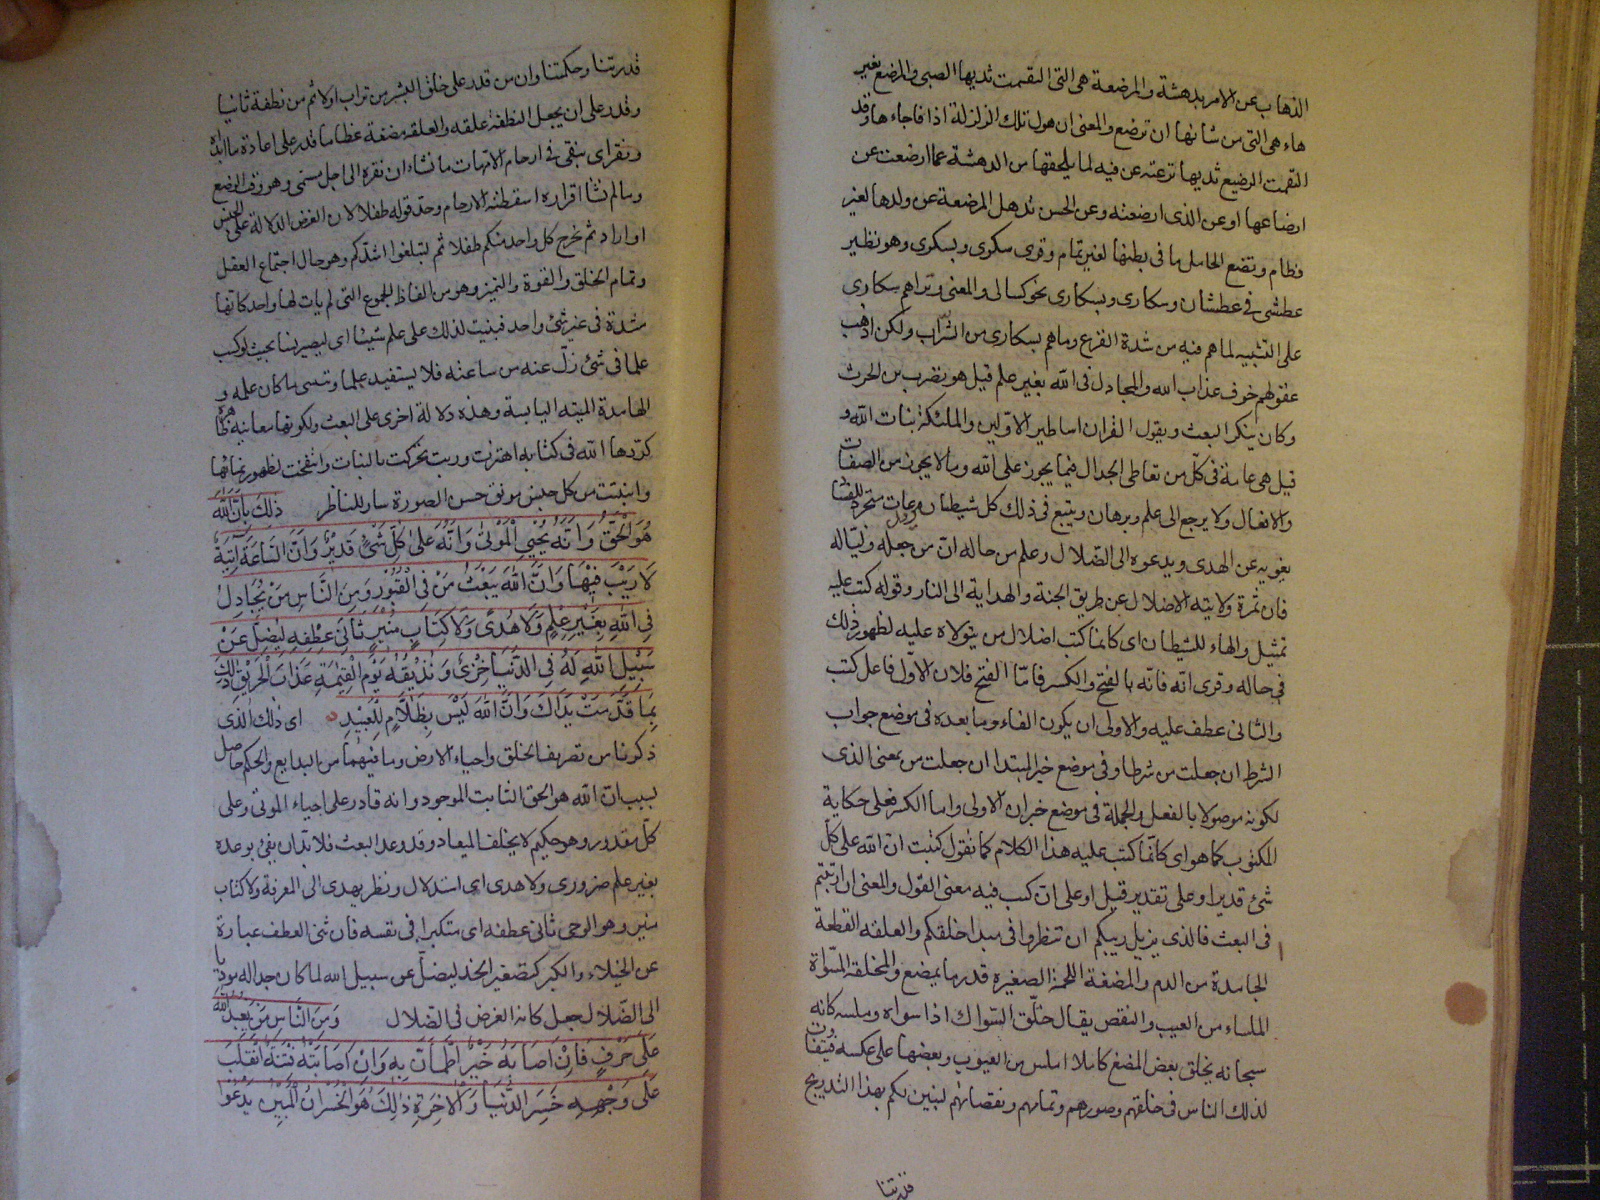 الذهاب عن الامر بدهشة والمرضعة هى التى القمت ثديها الصبى والمرضع بغير
هاء هى التى من شانها ان ترضع والمعنى ان هول تلك الزلزلة اذا فاجاءها وقد
القمت الرضيع ثديها نزعته عن فيه لما يلحقها من الدهشة عما ارضعت عن
ارضاعها او عن الذى ارضعته وعن الحسن تذهل المرضعة عن ولدها لغير
فطام وتضع الحامل ما فى بطنها لغير تمام وقرى سكرى وبسكرى وهو نظير
عطشى فى عطشان وسكارى وبسكارى نحو كسالى والمعنى وتراهم سكارى
على التشبيه لما هم فيه من شدة الفزع وما هم بسكارى من الشراب ولكن اذهب
عقولهم خوف عذاب الله والمجادل فى الله بغير علم قيل هو نضر بن الحرث
وكان ينكر البعث ويقول القران اساطير الاولين والملئكة بنات الله و
قيل هى عامة فى كل من تعاطى الجدال فيما يجوز على الله وما لا يجوز من الصفات
والافعال ولا يرجع الى علم وبرهان ويتبع فى ذلك كل شيطان عات متجرد للفساد
يغويه عن الهدى ويدعوه الى الضلال وعلم من حاله ان من جعله وليا له
فان ثمرة ولايته الاضلال عن طريق الجنة والهداية الى النار وقوله كتب عليه
تمثيل والهاء للشيطان اى كانما كتب اضلال من يتولاه عليه لظهور ذلك
فى حاله وقرى انه فانه بالفتح والكسر فاما الفتح فلان الاول فاعل كتب
والثانى عطف عليه والاولى ان يكون الفاء وما بعده فى موضع جواب
الشرط ان جعلت من شرطا وفى موضع خبر المبتدا ان جعلت من بمعنى الذى
لكونه موصولا بالفعل والجملة فى موضع خبر ان الاولى واما الكسر فعلى حكاية
المكتوب كما هو اى كانما كتب عليه هذا الكلام كما تقول كتبت ان الله على كل
شئ قدير او على تقدير قيل او على ان كتب فيه معنى القول والمعنى ان ارتبتم
فى البعث فالذى يزيل ريبكم ان تنظروا فى مبدا خلقكم والعلقه القطعة
الجامدة من الدم والمضغة اللحمة الصغيرة قدر ما يمضغ والمخلقة المسواة
الملساء من العيب والنقص يقال خلق السواك اذا سواه وملسه كانه
سبحانه يخلق بعض المضغ كاملا املس من العيوب وبعضها على عكسه فيتفاوت
لذلك الناس فى خلقهم وصورهم وتمامهم ونقصانهم لنبين لكم بهذا التدريج
قدرتنا
قدرتنا وحكمتنا وان من قدر على خلق البشر من تراب اولا ثم من نطفة ثانيا
وقدر على ان يجعل النطفة علقه والعلقه مضغة عظاما قدر على اعادة ما ابداه
ونقر اى نبقى فى ارحام الامهات ما نشاء ان نقره الى اجل مسمى وهو وقت الوضع
وما لم نشا اقراره اسقطته الارحام وحد قوله طفلا لان الغرض الدلالة على الجنس
او اراد ثم نخرج كل واحد منكم طفلا ثم لتبلغوا اشدكم وهو حال اجتماع العقل
وتمام الخلق والقوة والتميز وهو من الفاظ الجموع التى لم يات لها واحد كانها
شدة فى غير شئ واحد فبنيت لذلك على علم شيئا اى ليصير نسا بحيث لو كسب
علما فى شئ زل عنه من ساعته فلا يستفيد علما وتنسى ما كان علمه و
الهامدة الميته اليابسة وهذه دلالة اخرى على البعث ولكونها معاينه ظاهرة
كررها الله فى كتابه اهتزت وربت تحركت بالنبات وانتفخت لظهور نمائها
وانبتت من كل جنس مونق حسن الصورة سار للناظر ذَلِكَ بِاَنَّ اللهَ
هُوَ الْحَقُّ وَاَنَّهُ يُحْيِي الْمَوْتٰى وَاَنَّهُ عَلٰى كُلِّ شَئٍ قَدِيْرٌ وَاَنَّ السَّاعَةَ اٰتِيَةٌ
لَا رَيْبَ فِيْهَا وَاَنَّ اللهَ يَبْعَثُ مَنْ فِي الْقُبُوْرِ وَمِنَ النَّاسِ مَنْ يُجَادِلُ
فِي اللهِ بِغَيْرِ عِلْمٍ وَلَا هُدًى وَلَا كِتَابٍ مُنِيْرٍ ثَانِيَ عِطْفِهِ لِيُضِلَّ عَنْ
سَبِيْلِ اللهِ لَهُ فِي الدُّنْيَا خِزْيٌ وَنُذِيْقُهُ يَوْمَ الْقِيٰمَةِ عَذَابَ الْحَرِيْقِ ذٰلِكَ
بِمَا قَدَّمَتْ يَدَاكَ وَاَنَّ اللهَ لَيْسَ بِظَلَّامٍ لِلْعَبِيْدِ اى ذلك الذى
ذكرنا من تصريف الخلق واحياء الارض وما فيهما من البدايع والحكم حاصل
لسبب ان الله هو الحق الثابت الموجود وانه قادر على احياء الموتى وعلى
كل مقدور وهو حكيم لا يخلف الميعاد وقد وعد البعث فلا بد ان يفى بوعده
بغير علم ضرورى ولا هدى اى استدلال ونظر يهدى الى المعرفة ولا كتاب
منير وهو الوحى ثانى عطفه اى متكبرا فى نفسه فان ثنى العطف عبارة
عن الخيلاء والكبر كتصغير الخد ليضل عن سبيل الله لما كان جداله موديا
الى الضلال جعل كانه الغرض فى الضلال وَمِنَ النَّاسِ مَنْ يَعْبُدُ اللهَ
عَلٰى حَرْفٍ فَاِنْ اَصَابَهُ خَيْرٌ اطْمَاَنَّ بِهِ وَاِنْ اَصَابَتْهُ فِتْنَةٌ انْقَلَبَ
عَلٰى وَجْهِهِ خَسِرَ الدُّنْيَا وَالْاٰخِرَةِ ذٰلِكَ هُوَ الْخُسْرَانُ الْمُبِيْنُ يَدْعُوْا